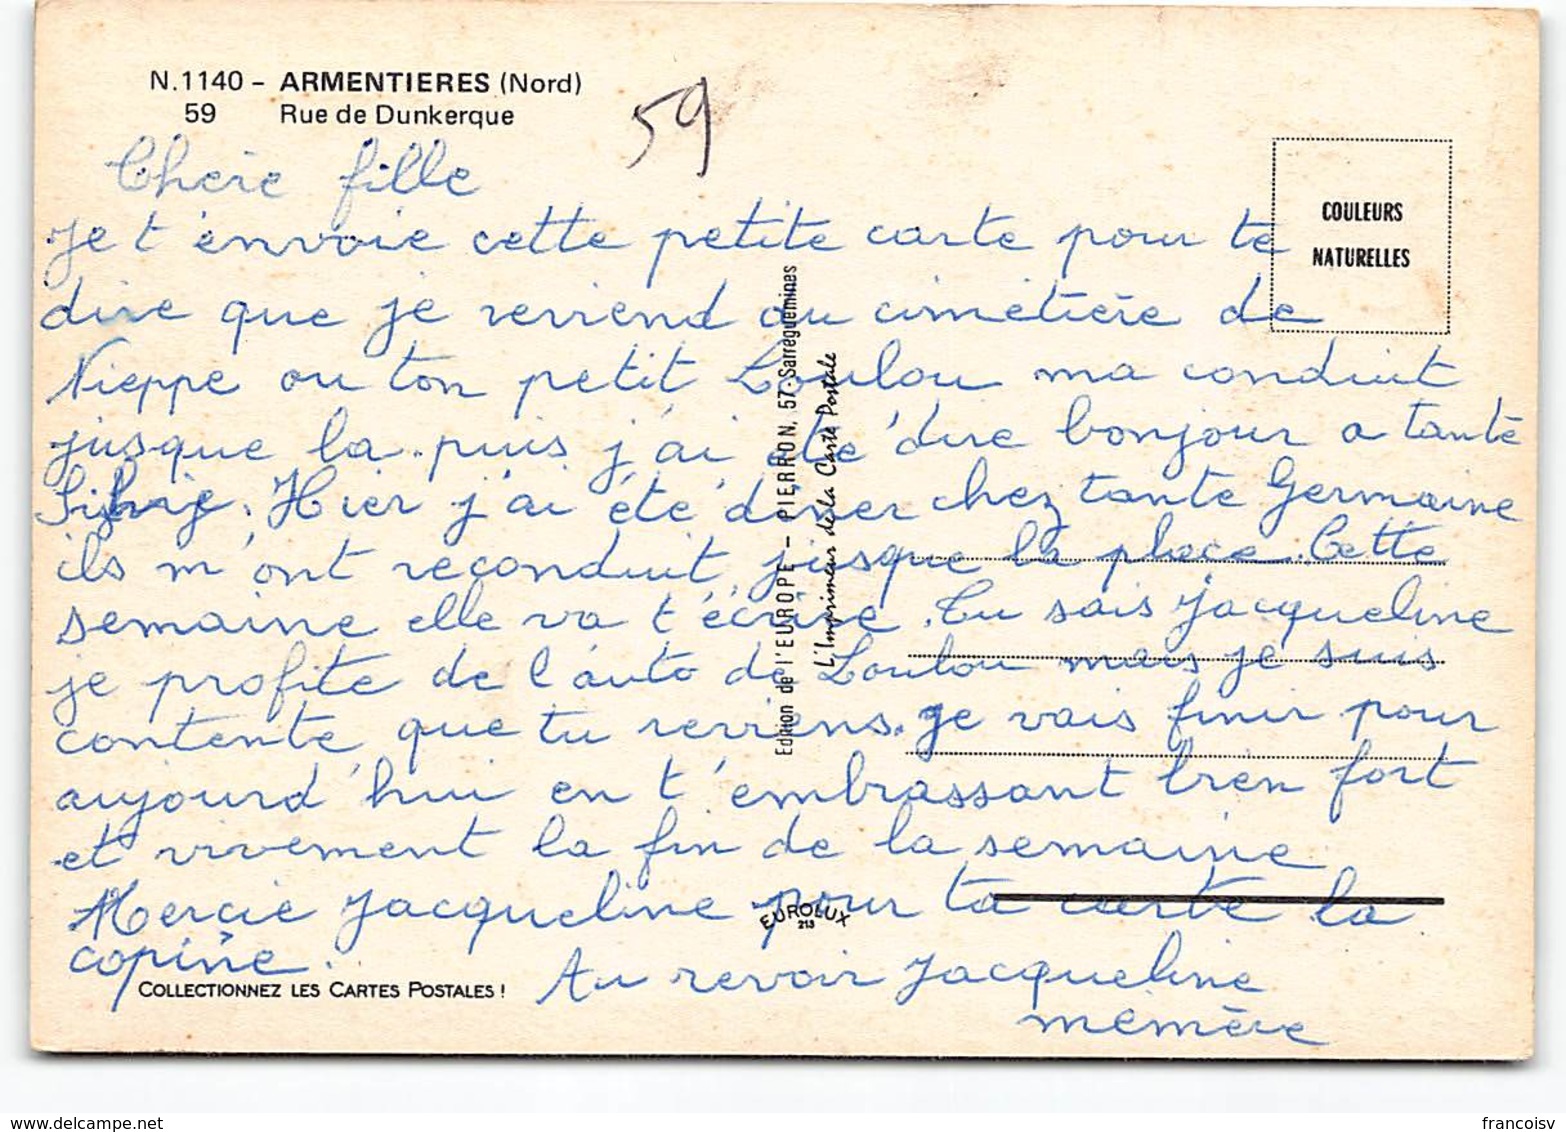 N.1140 - ARMENTIERES (Nord)
59 Rue de Dunkerque
59
COULEURS
NATURELLES
Chère fille
je t'envoie cette petite carte pour te
dire que je reviend du cimetière de
Nieppe ou ton petit Loulou ma conduit
jusque la. puis j'ai été dire bonjour a tante
Silvie. Hier j'ai été diner chez tante Germaine
ils m'ont reconduit jusque la place. Cette
semaine elle va t'écrire. Tu sais jacqueline
je profite de l'auto de Loulou mais je suis
contente que tu reviens. je vais finir pour
aujourd'hui en t'embrassant bien fort
et vivement la fin de la semaine
Mercie jacqueline pour ta carte la
copine.
Au revoir jacqueline
mémère
Edition de l'EUROPE - PIERRON, 57-Sarreguemines
L'Imprimeur de la Carte Postale
EUROLUX
213
COLLECTIONNEZ LES CARTES POSTALES !
www.delcampe.net
francoisv